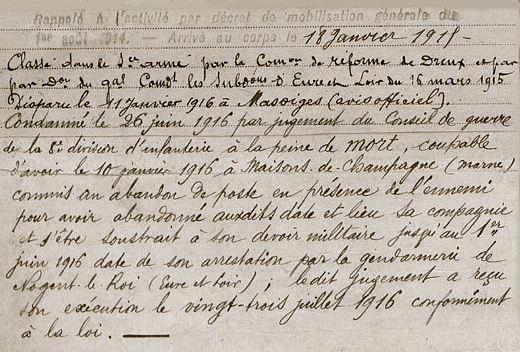 Rappelé à l'activité par décret de mobilisation générale du
1er août 1914. — Arrivé au corps le 18 Janvier 1915 -
Classé dans le Ser armé par la Comon de réforme de Dreux et par
par Don du gal Comdt les Subdons d'Eure et Loir du 16 mars 1915
Disparu le 11 Janvier 1916 à Massiges (avis officiel).
Condamné le 26 juin 1916 par jugement du Conseil de guerre
de la 8e division d'infanterie à la peine de mort, coupable
d'avoir le 10 janvier 1916 à Maisons-de-Champagne (marne)
commis un abandon de poste en présence de l'ennemi
pour avoir abandonné auxdits date et lieu sa compagnie
et s'être soustrait à son devoir militaire jusqu'au 1er
juin 1916 date de son arrestation par la gendarmerie de
Nogent-le-Roi (Eure et Loir) ; ledit jugement a reçu
son exécution le vingt-trois juillet 1916 conformément
à la loi. —